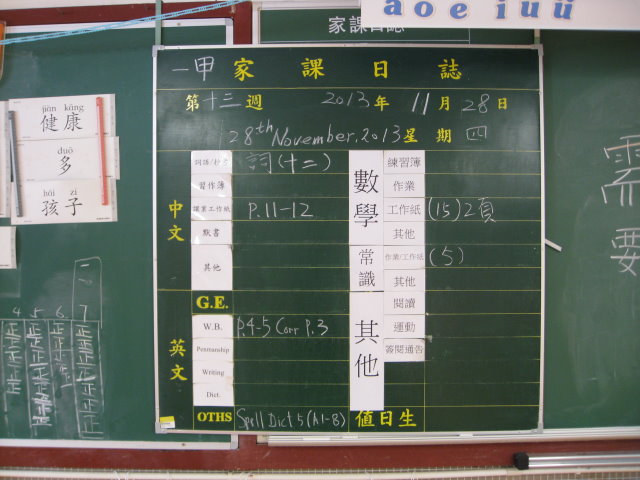 a o e i u ü
家課日誌
一甲 家課日誌
第十三週 2013年 11月28日
28th November, 2013 星期四
jiàn kāng
健康
duō
多
hái zi
孩子
中文
詞語/抄書 詞(十二)
習作簿
課業工作紙 P.11-12
默書
其他
英文
G.E.
W.B. P.4-5 Corr P.3
Penmanship
Writing
Dict.
OTHS Spell Dict 5 (A1-8)
數學
練習簿
作業
工作紙 (15) 2頁
其他
常識
作業/工作紙 (5)
其他
其他
閱讀
運動
簽閱通告
值日生
需要
4 5 6 7